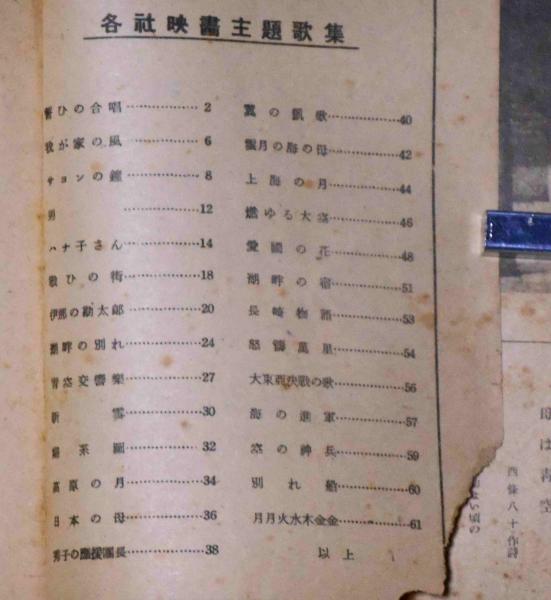 各社映畫主題歌集
誓ひの合唱 2
我が家の風 6
サヨンの鐘 8
男 12
ハナ子さん 14
戦ひの街 18
伊那の勘太郎 20
湖畔の別れ 24
青空交響樂 27
新雪 30
系圖 32
高原の月 34
日本の母 36
男子の應援團長 38
翼の凱歌 40
月の海の母 42
上海の月 44
燃ゆる大空 46
愛國の花 48
湖畔の宿 51
長崎物語 53
怒濤萬里 54
大東亞決戰の歌 56
海の進軍 57
空の神兵 59
別れ船 60
月月火水木金金 61
以上
母は青空
西條八十作詩